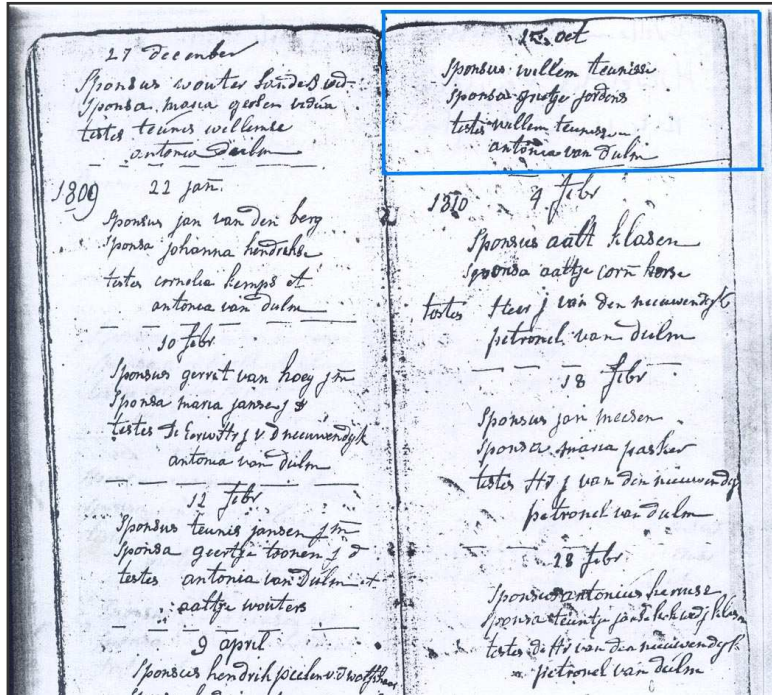 27 december
Sponsus wouter
Sponsa maria gerben vidua
testes teunis willemse
antonia dulm
1809 22 jan.
Sponsus jan van den berg
Sponsa johanna hendrikse
testes cornelia kemps et
antonia van dulm
10 febr
Sponsus gerrit van hoey jm
Sponsa maria jansen j d
testes de j v. d nieuwendijk
antonia van dulm
12 febr
Sponsus teunis jansen jm
Sponsa geertje toonen j d
testes antonia van Dulm et
aaltje wouters
9 april
Sponsus hendrik
15 oct
Sponsus willem teunisse
Sponsa grietje jordens
testes willem teunisse
antonia van dulm
1810 4 febr
Sponsus aalt klasen
Sponsa aaltje corn korse
testes Heer j van den nieuwendijk
petronel van dulm
18 febr
Sponsus jan meesen
Sponsa maria
testes Hr j van den nieuwendijk
petronel van dulm
28 febr
Sponsus antonius
Sponsa teuntje
testes de Hr van den nieuwendijk
petronel van dulm